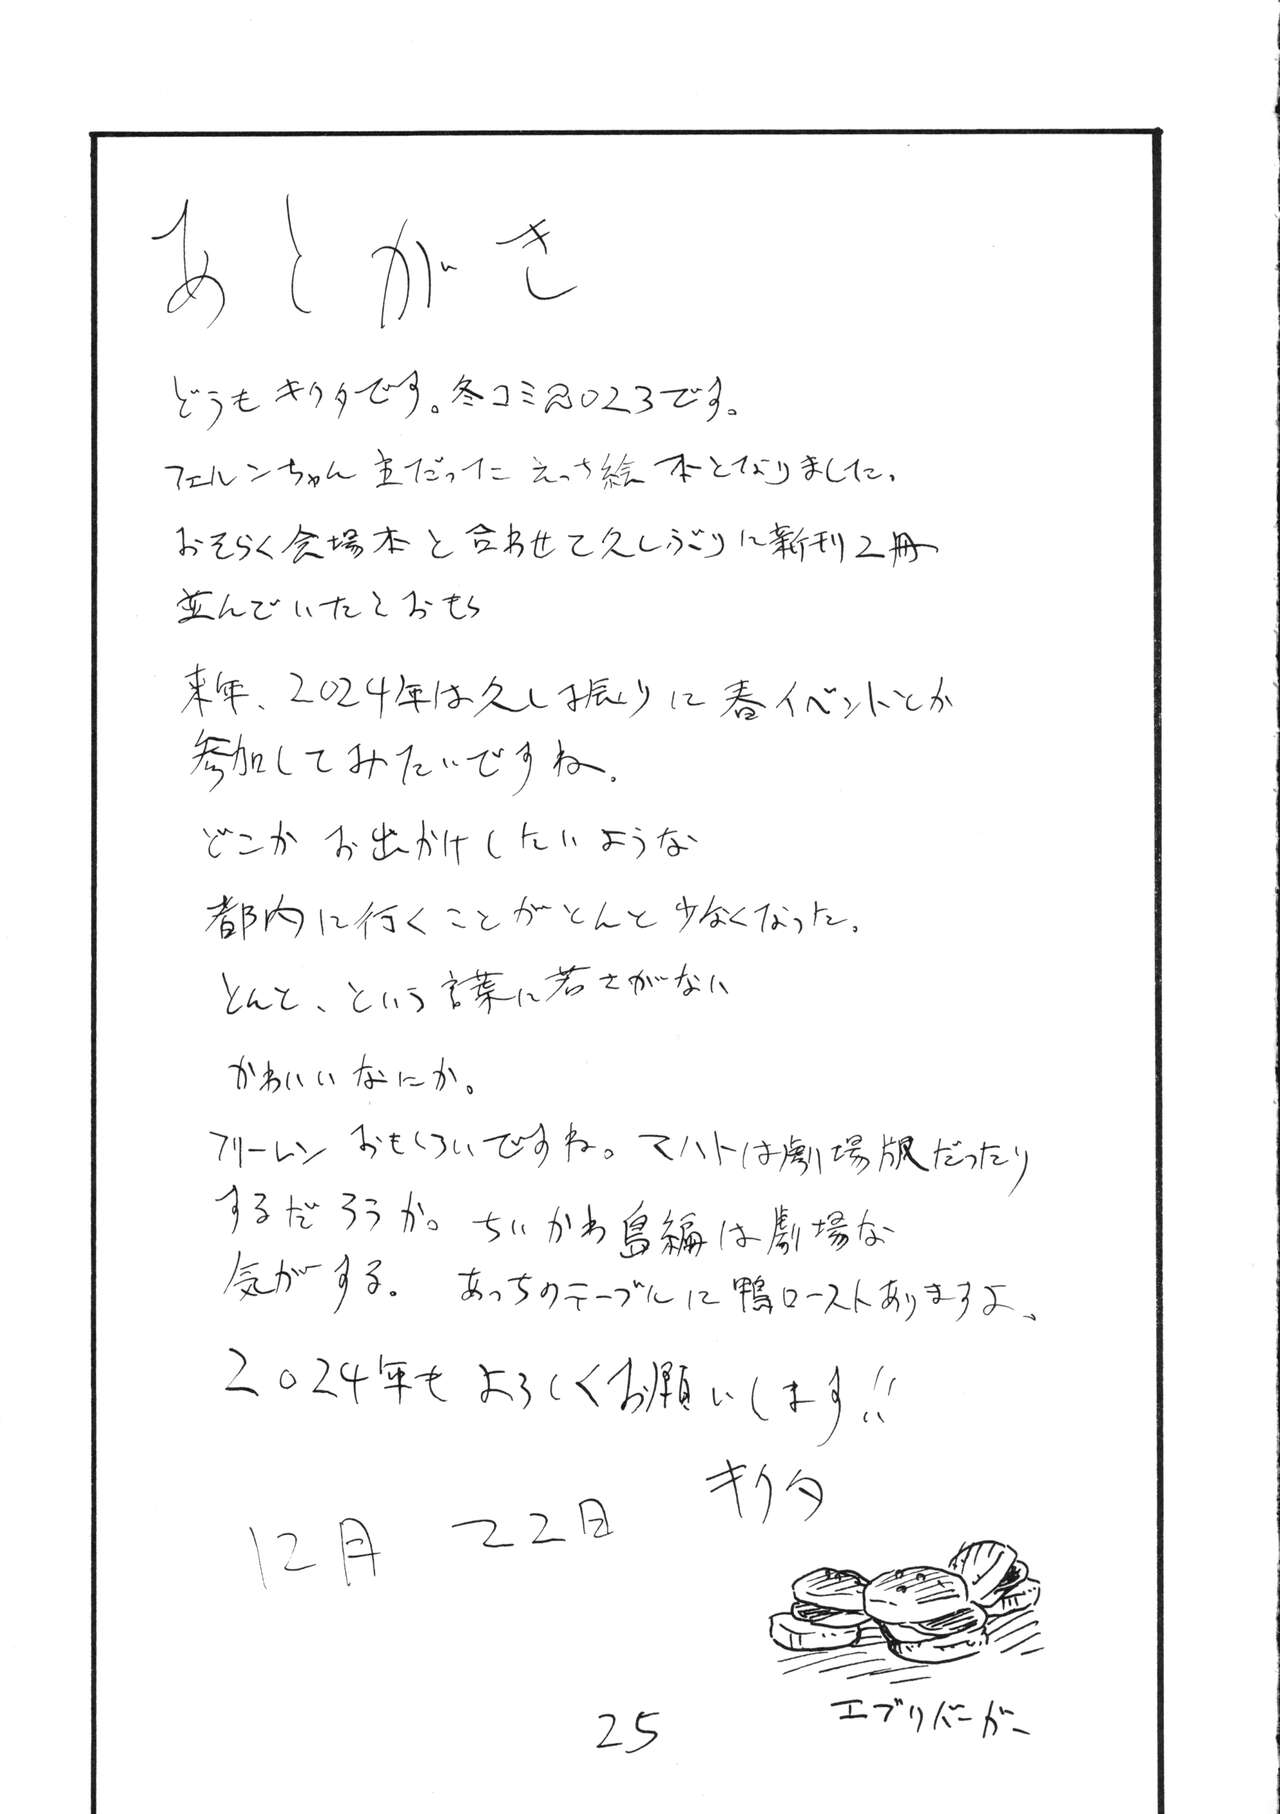 あとがき
どうもキクタです。冬コミ2023です。
フェルンちゃん主だったえっち絵本となりました。
おそらく会場本と合わせて久しぶりに新刊2冊
並んでいたとおもう
来年、2024年は久しぶ振りに春イベントとか
参加してみたいですね。
どこかお出かけしたいような
都内に行くことがとんと少なくなった。
とんと、という言葉に若さがない
かわいいなにか。
フリーレンおもしろいですね。マハトは劇場版だったり
するだろうか。ちいかわ島編は劇場な
気がする。あっちのテーブルに鴨ローストありますよ、
2024年もよろしくお願いします!!
キクタ
12月 22日
エブリバーガー
25